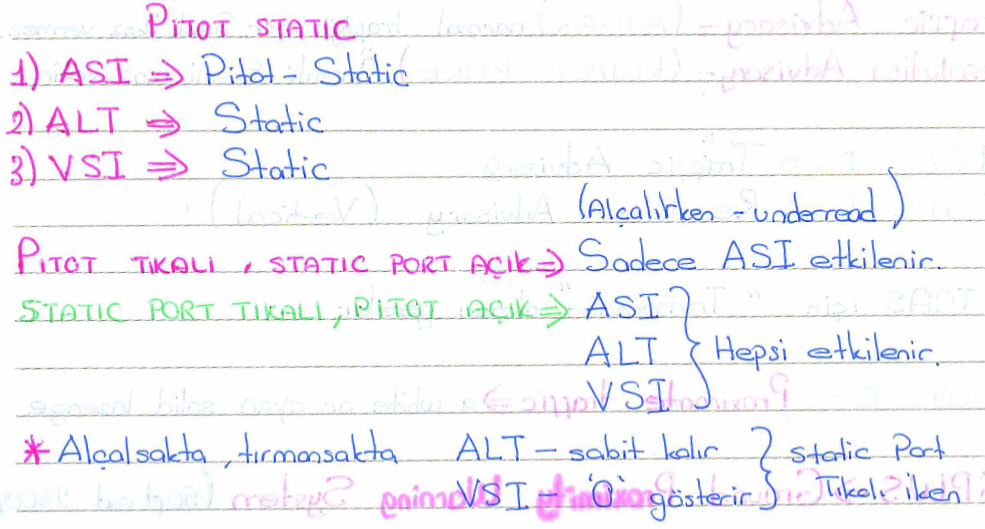 PITOT STATIC
1) ASI ⇒ Pitot - Static
2) ALT ⇒ Static
3) VSI ⇒ Static
(Alçalırken - underread)
PITOT TIKALI, STATIC PORT AÇIK ⇒ Sadece ASI etkilenir.
STATIC PORT TIKALI, PITOT AÇIK ⇒ ASI
ALT } Hepsi etkilenir.
VSI
* Alçalsakta, tırmansakta ALT - sabit kalır } static Port
VSI - '0' gösterir } Tıkalı iken